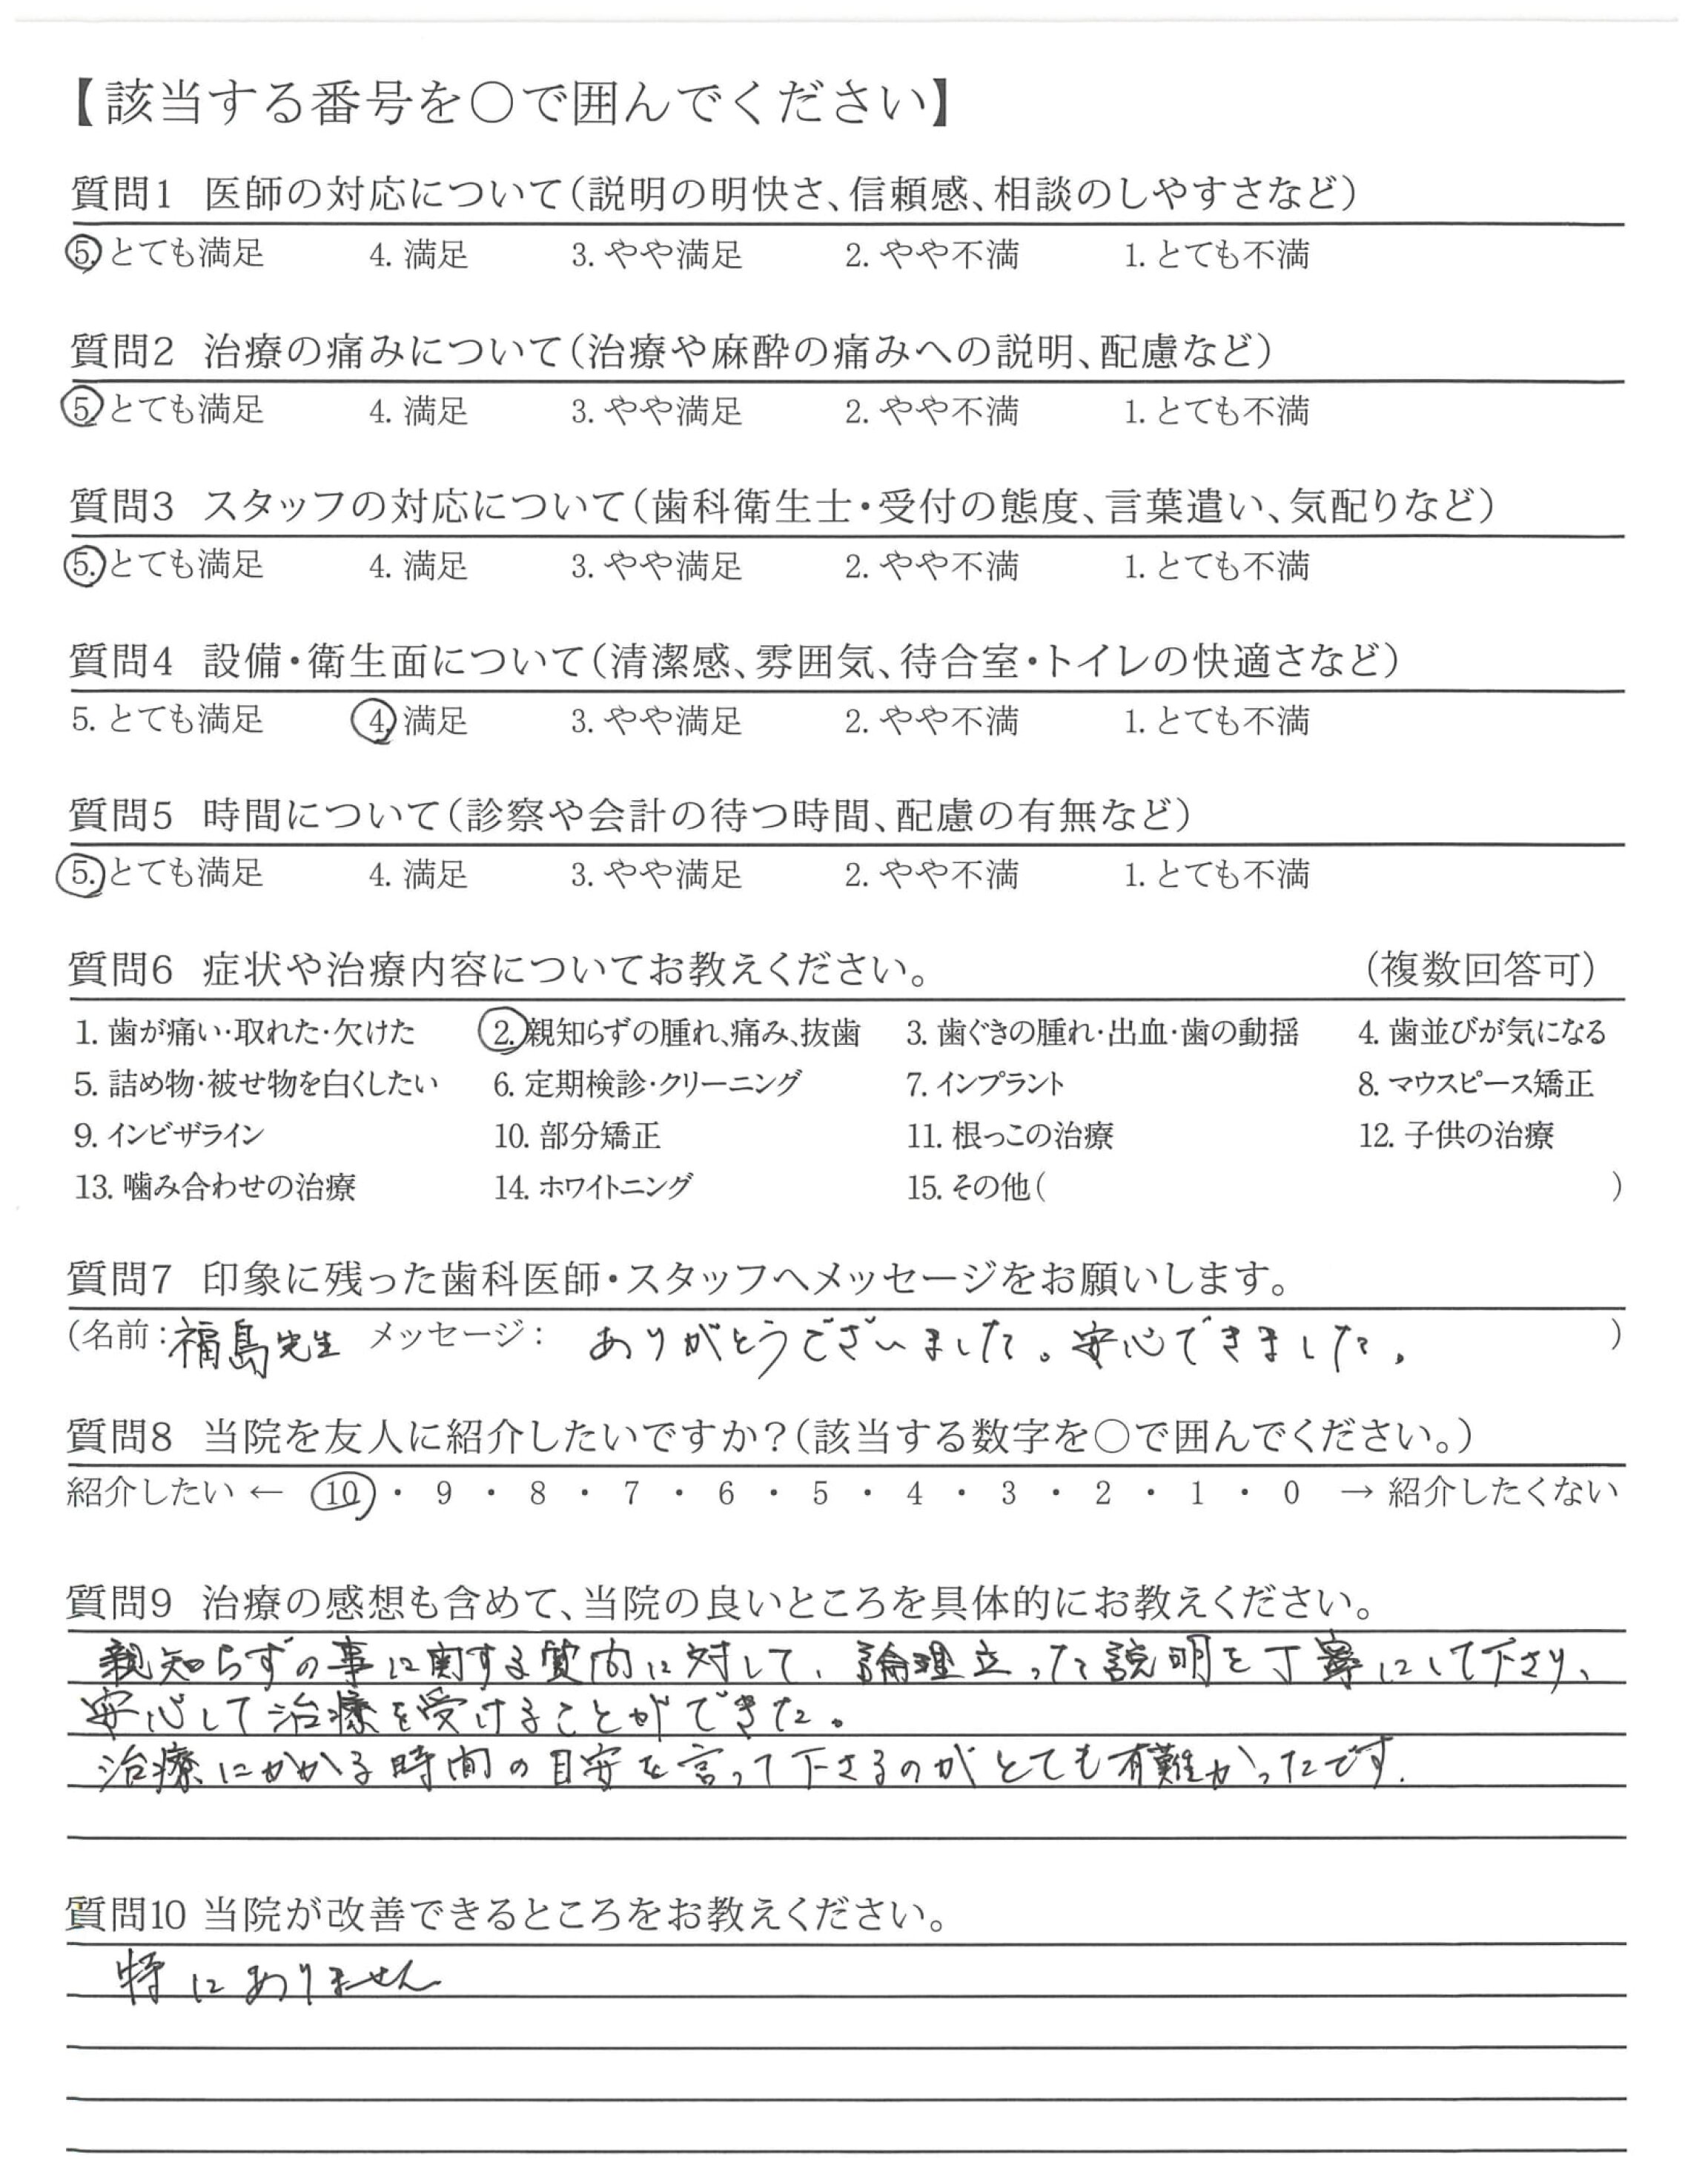 【該当する番号を○で囲んでください】
質問1 医師の対応について(説明の明快さ、信頼感、相談のしやすさなど)
5. とても満足 4. 満足 3. やや満足 2. やや不満 1. とても不満
質問2 治療の痛みについて(治療や麻酔の痛みへの説明、配慮など)
5. とても満足 4. 満足 3. やや満足 2. やや不満 1. とても不満
質問3 スタッフの対応について(歯科衛生士・受付の態度、言葉遣い、気配りなど)
5. とても満足 4. 満足 3. やや満足 2. やや不満 1. とても不満
質問4 設備・衛生面について(清潔感、雰囲気、待合室・トイレの快適さなど)
5. とても満足 4. 満足 3. やや満足 2. やや不満 1. とても不満
質問5 時間について(診察や会計の待つ時間、配慮の有無など)
5. とても満足 4. 満足 3. やや満足 2. やや不満 1. とても不満
質問6 症状や治療内容についてお教えください。 (複数回答可)
1. 歯が痛い・取れた・欠けた 2. 親知らずの腫れ、痛み、抜歯 3. 歯ぐきの腫れ・出血・歯の動揺 4. 歯並びが気になる
5. 詰め物・被せ物を白くしたい 6. 定期検診・クリーニング 7. インプラント 8. マウスピース矯正
9. インビザライン 10. 部分矯正 11. 根っこの治療 12. 子供の治療
13. 噛み合わせの治療 14. ホワイトニング 15. その他( )
質問7 印象に残った歯科医師・スタッフへメッセージをお願いします。
(名前：福島先生 メッセージ： ありがとうございました。安心できました。 )
質問8 当院を友人に紹介したいですか？(該当する数字を○で囲んでください。)
紹介したい ← 10 ・ 9 ・ 8 ・ 7 ・ 6 ・ 5 ・ 4 ・ 3 ・ 2 ・ 1 ・ 0 → 紹介したくない
質問9 治療の感想も含めて、当院の良いところを具体的にお教えください。
親知らずの事に関する質問に対して、論理立った説明を丁寧にして下さり、
安心して治療を受けることができた。
治療にかかる時間の目安を言って下さるのがとても有難かったです。
質問10 当院が改善できるところをお教えください。
特にありません